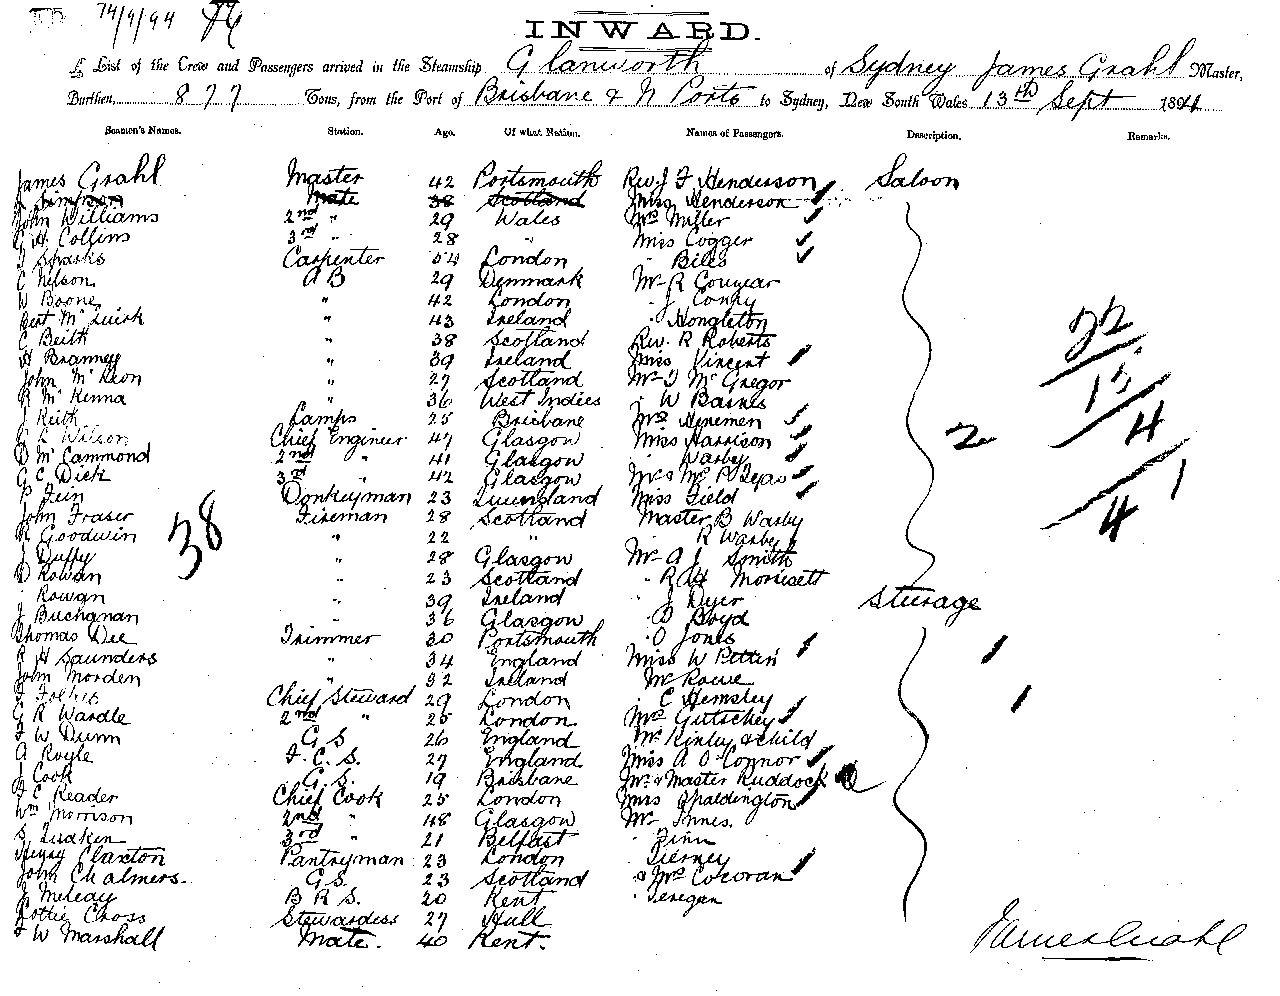 14/9/94
INWARD.
A List of the Crew and Passengers arrived in the Steamship Glanworth of Sydney James Grahl Master,
Burthen, 877 Tons, from the Port of Brisbane & N Ports to Sydney, New South Wales 13th Sept 1894
Seamen's Names. Station. Age. Of what Nation. Names of Passengers. Description. Remarks.
James Grahl Master 42 Portsmouth Rev. J F Henderson Saloon
J Simpson Mate 38 Scotland Miss Henderson
John Williams 2nd " 29 Wales Mrs Miller
G H Collins 3rd " 28 " Miss Cogger
J Sparks Carpenter 54 London " Biles
C Nelson A B 29 Denmark Mr R Couqear
W Boone " 42 London " J Conry
Bert McQuirk " 43 Ireland " Hongleton
C Beith " 38 Scotland Rev. R Roberts
H Branney " 39 Ireland Miss Vincent
John McKeon " 27 Scotland Mr D McGregor
R McKenna " 36 West Indies " W Barnes
J Keith Lamps 25 Brisbane Mrs Henemen
L Wilson Chief Engineer 47 Glasgow Miss Harrison
D McCammond 2nd " 41 Glasgow " Warby
G C Dick 3rd " 42 Glasgow Mr & Mrs P
P Fein Donkeyman 23 Queensland Miss Field
John Fraser Fireman 28 Scotland Master B Warby
R Goodwin " 22 " " R Warby
J Duffy " 28 Glasgow Mr A J Smith
D Rowan " 23 Scotland " R H Morrisett
Rowan " 39 Ireland " J Dyer Steerage
J Buchanan " 36 Glasgow " D Boyd
Thomas Dee Trimmer 30 Portsmouth " O Jones
R H Saunders " 34 England Miss W Pettin
John Morden " 32 Ireland Mr Rowe
Chief Steward 29 London " C Hemsley
G R Wardle 2nd " 25 London Mrs Gutschey
F W Dunn G S 26 England Mr Kinley & child
A Royle F. C. S. 27 England Miss A O'Connor
J Cook G. S. 19 Brisbane Mrs & Master Ruddock
J C Reader Chief Cook 25 London Miss Spaldington
Wm Morrison 2nd " 48 Glasgow Mr Innes.
S 3rd " 21 Belfast " Finn
Henry Claxton Pantryman 23 London " Tierney
John Chalmers. G S. 23 Scotland " Mrs Cocoran
J Meleay B R S. 20 Kent " Tenegan
Lottie Cross Stewardess 27 Hull
F W Marshall Mate. 40 Kent.
38
2
22
15
4
4 1
James Grahl